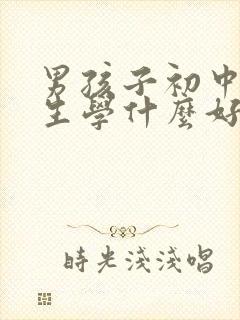 男孩子初中
生學什麼好
時光淺淺唱